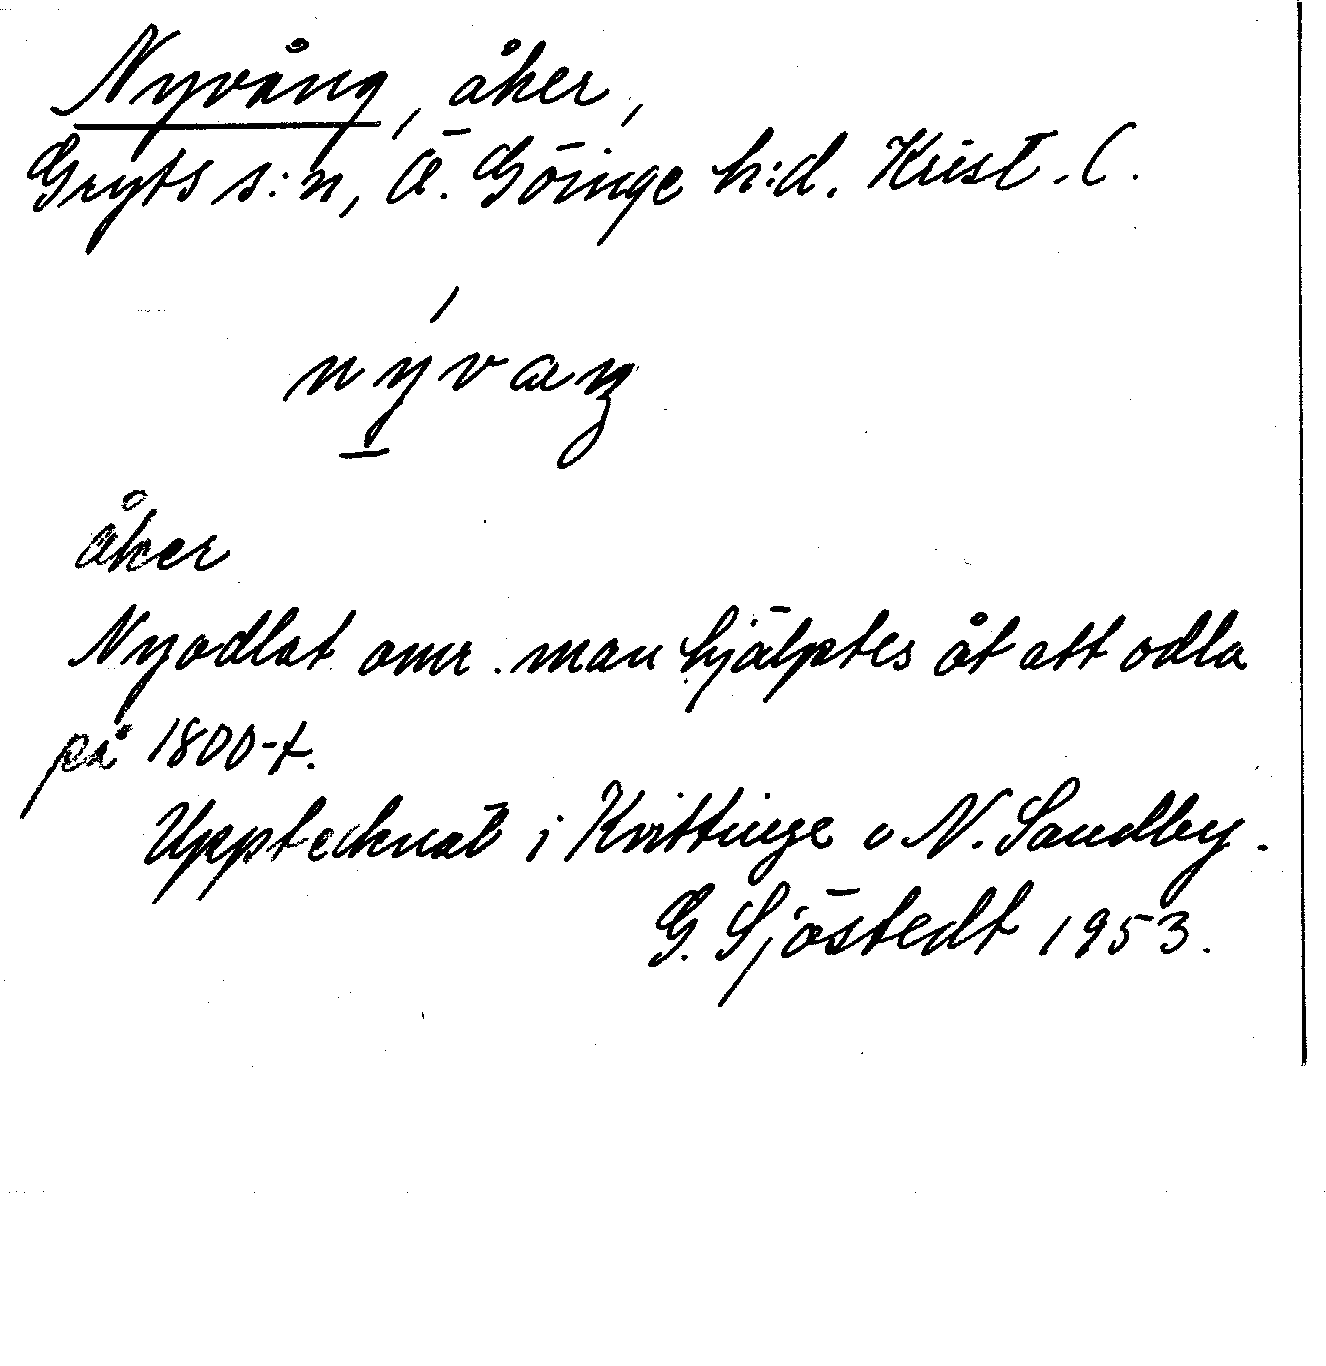 Nyvång, åker,
Gryts s:n, Ö. Göinge h:d. Krist. l.
nývaŋ
åker
Nyodlat omr. man hjälptes åt att odla
på 1800-t.
Upptecknat i Kvittinge o N. Sandby.
G. Sjöstedt 1953.